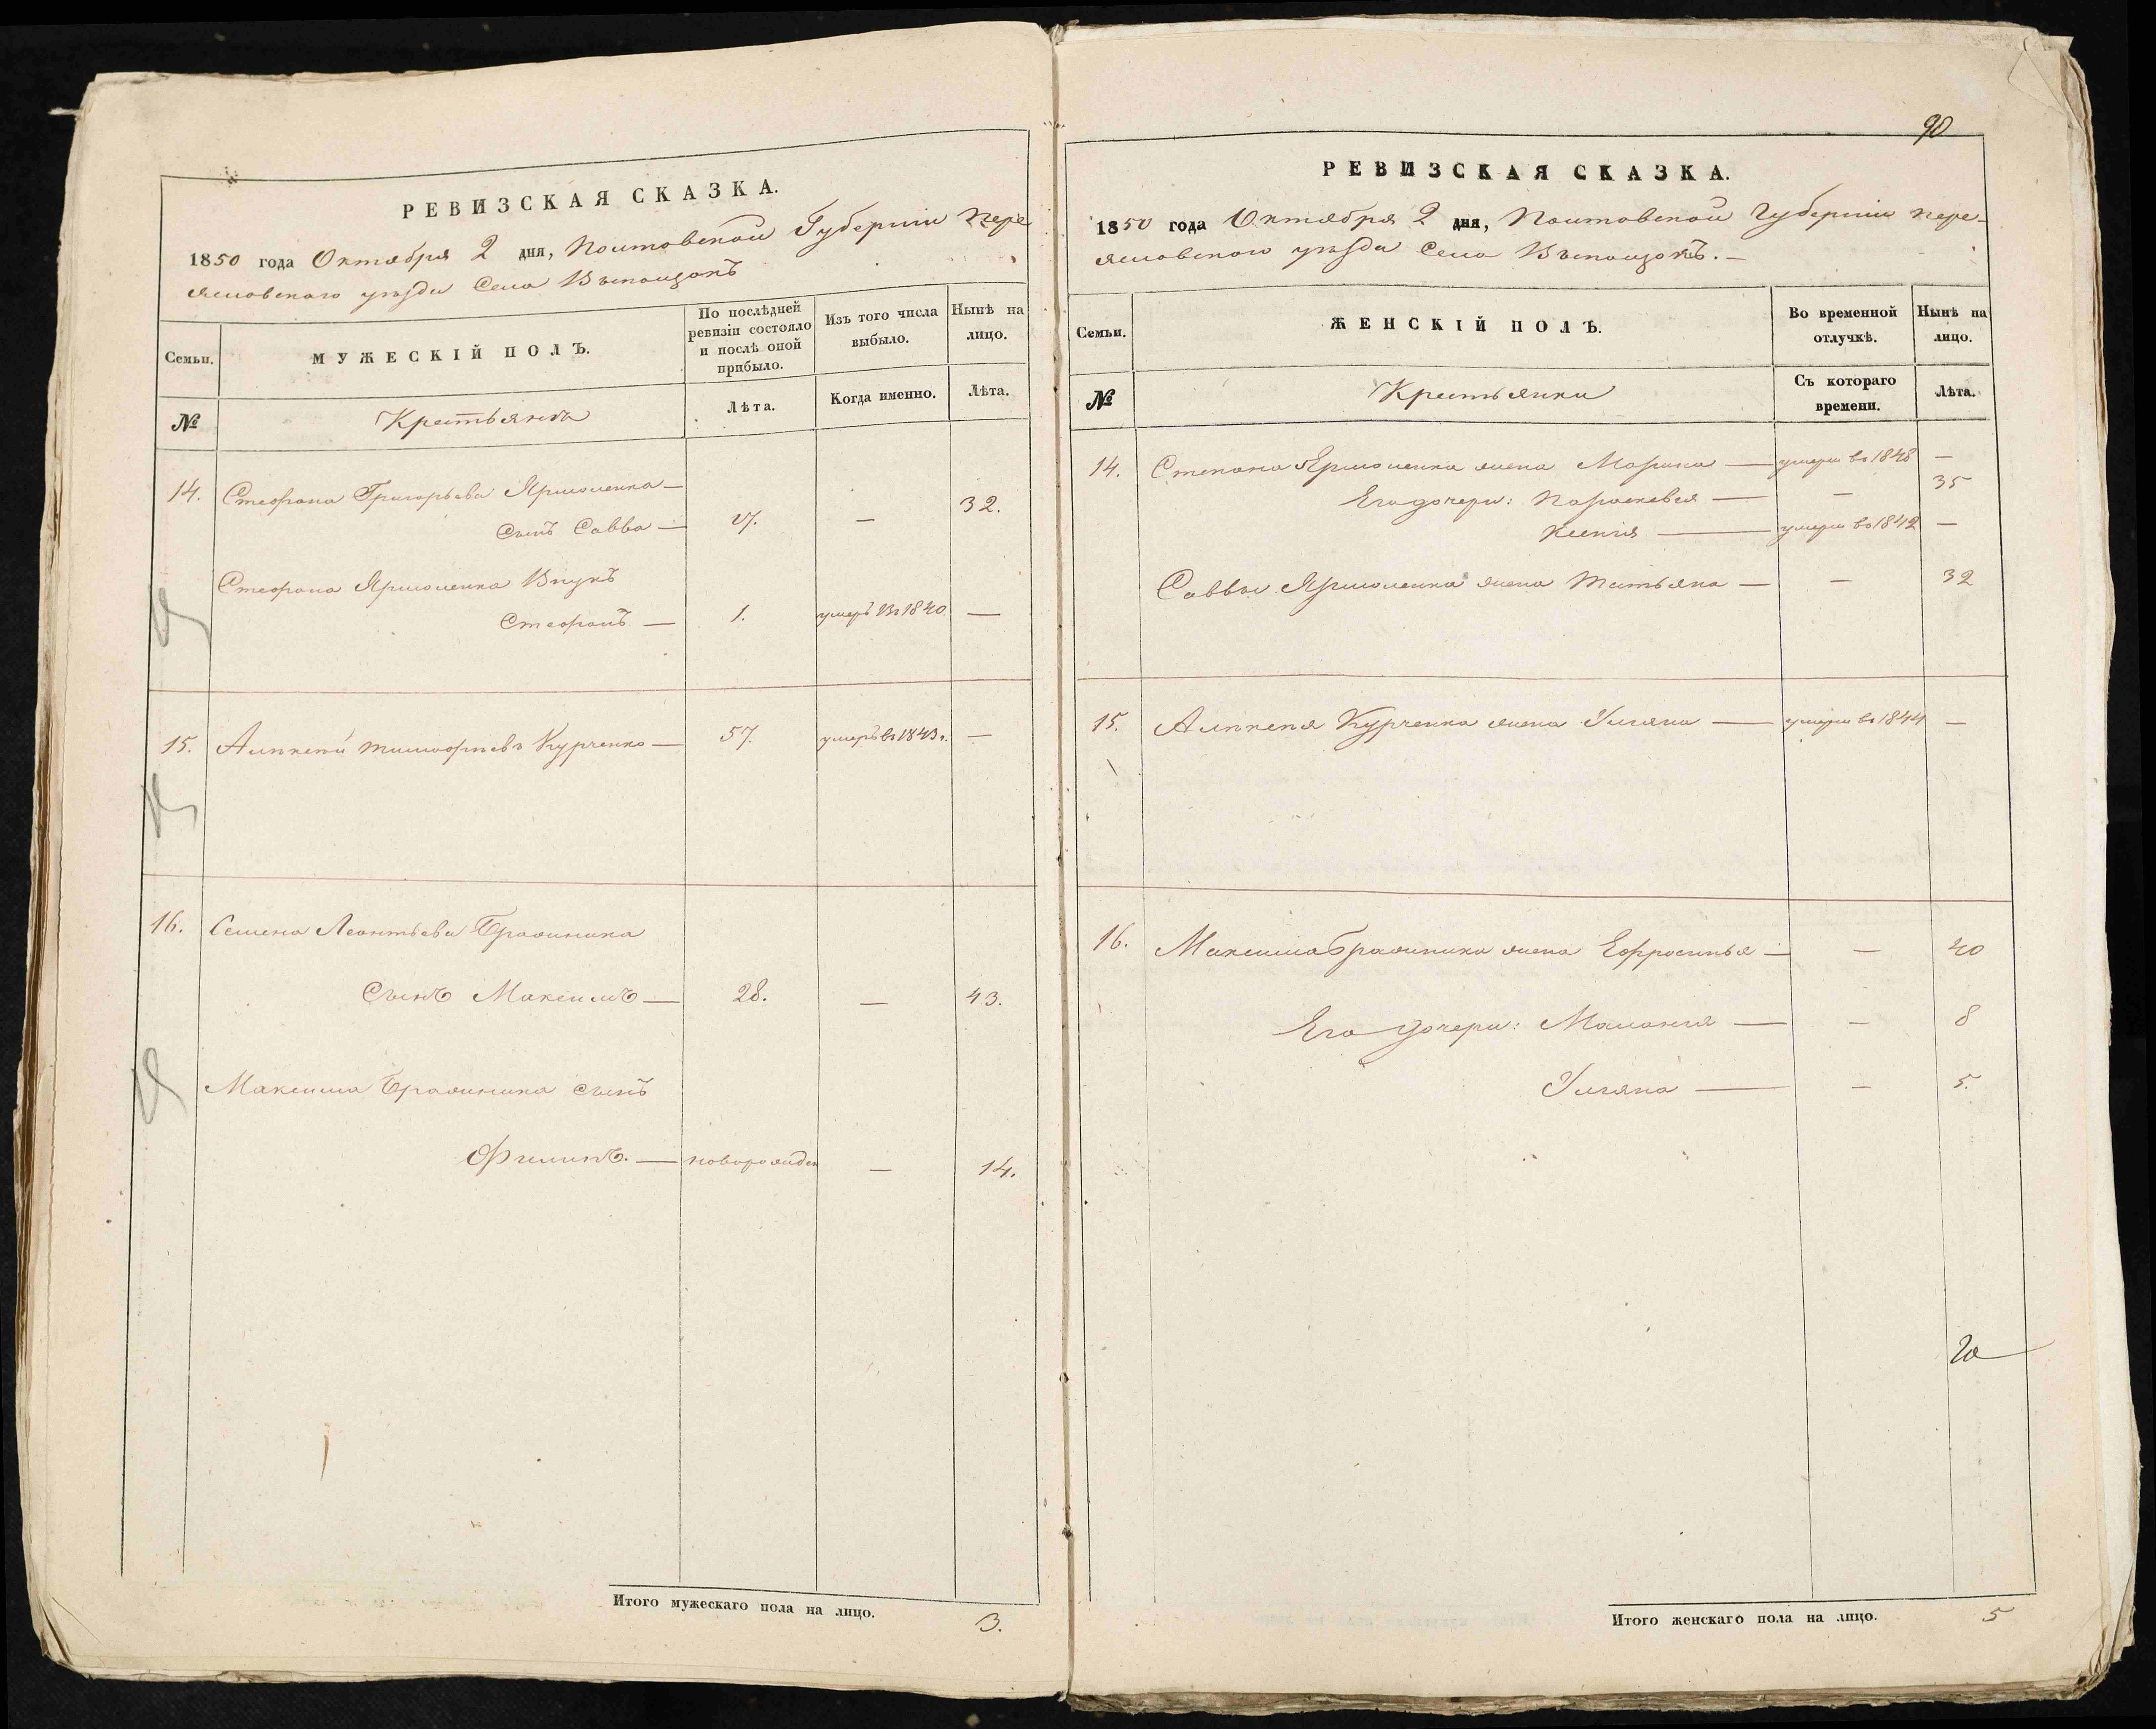 РЕВИЗСКАЯ СКАЗКА.
1850 года Октября 2 дня, Полтавской Губерніи Пере
яславскаго уѣзда Села Выползокъ
Семьи.
МУЖЕСКІЙ ПОЛЪ.
По послѣдней ревизіи состояло и послѣ оной прибыло.
Изъ того числа выбыло.
Нынѣ на лицо.
№
Крестьяне
Лѣта.
Когда именно.
Лѣта.
14. Стефана Григорьева Ярмоленка —
сынъ Савва — 17. — 32.
Стефана Ярмоленка Внукъ
Стефанъ — 1. умеръ въ 1840 —
15. Алексѣй Тимофѣевъ Курченко — 57. умеръ въ 1843 г. —
16. Семена Леонтьева Бражника
Сынъ Максимъ — 28. — 43.
Максима Бражника сынъ
Филипъ. — новорожден — 14.
Итого мужескаго пола на лицо. 3.
90
РЕВИЗСКАЯ СКАЗКА.
1850 года Октября 2 дня, Полтавской Губерніи Пере-
яславскаго уѣзда Села Выползокъ. —
Семьи.
ЖЕНСКІЙ ПОЛЪ.
Во временной отлучкѣ.
Нынѣ на лицо.
№
Крестьянки
Съ котораго времени.
Лѣта.
14. Степана Ярмоленка жена Марина — умерла въ 1848 —
Его дочери: Параскевья — — 35
Ксенія — умерла въ 1842 —
Саввы Ярмоленка жена Татьяна — — 32
15. Алексѣя Курченка жена Ульяна — умерла въ 1844 —
16. Максима Бражника жена Ефросинья — — 40
Его дочери: Маланья — — 8
Ульяна — — 5.
Итого женскаго пола на лицо. 5